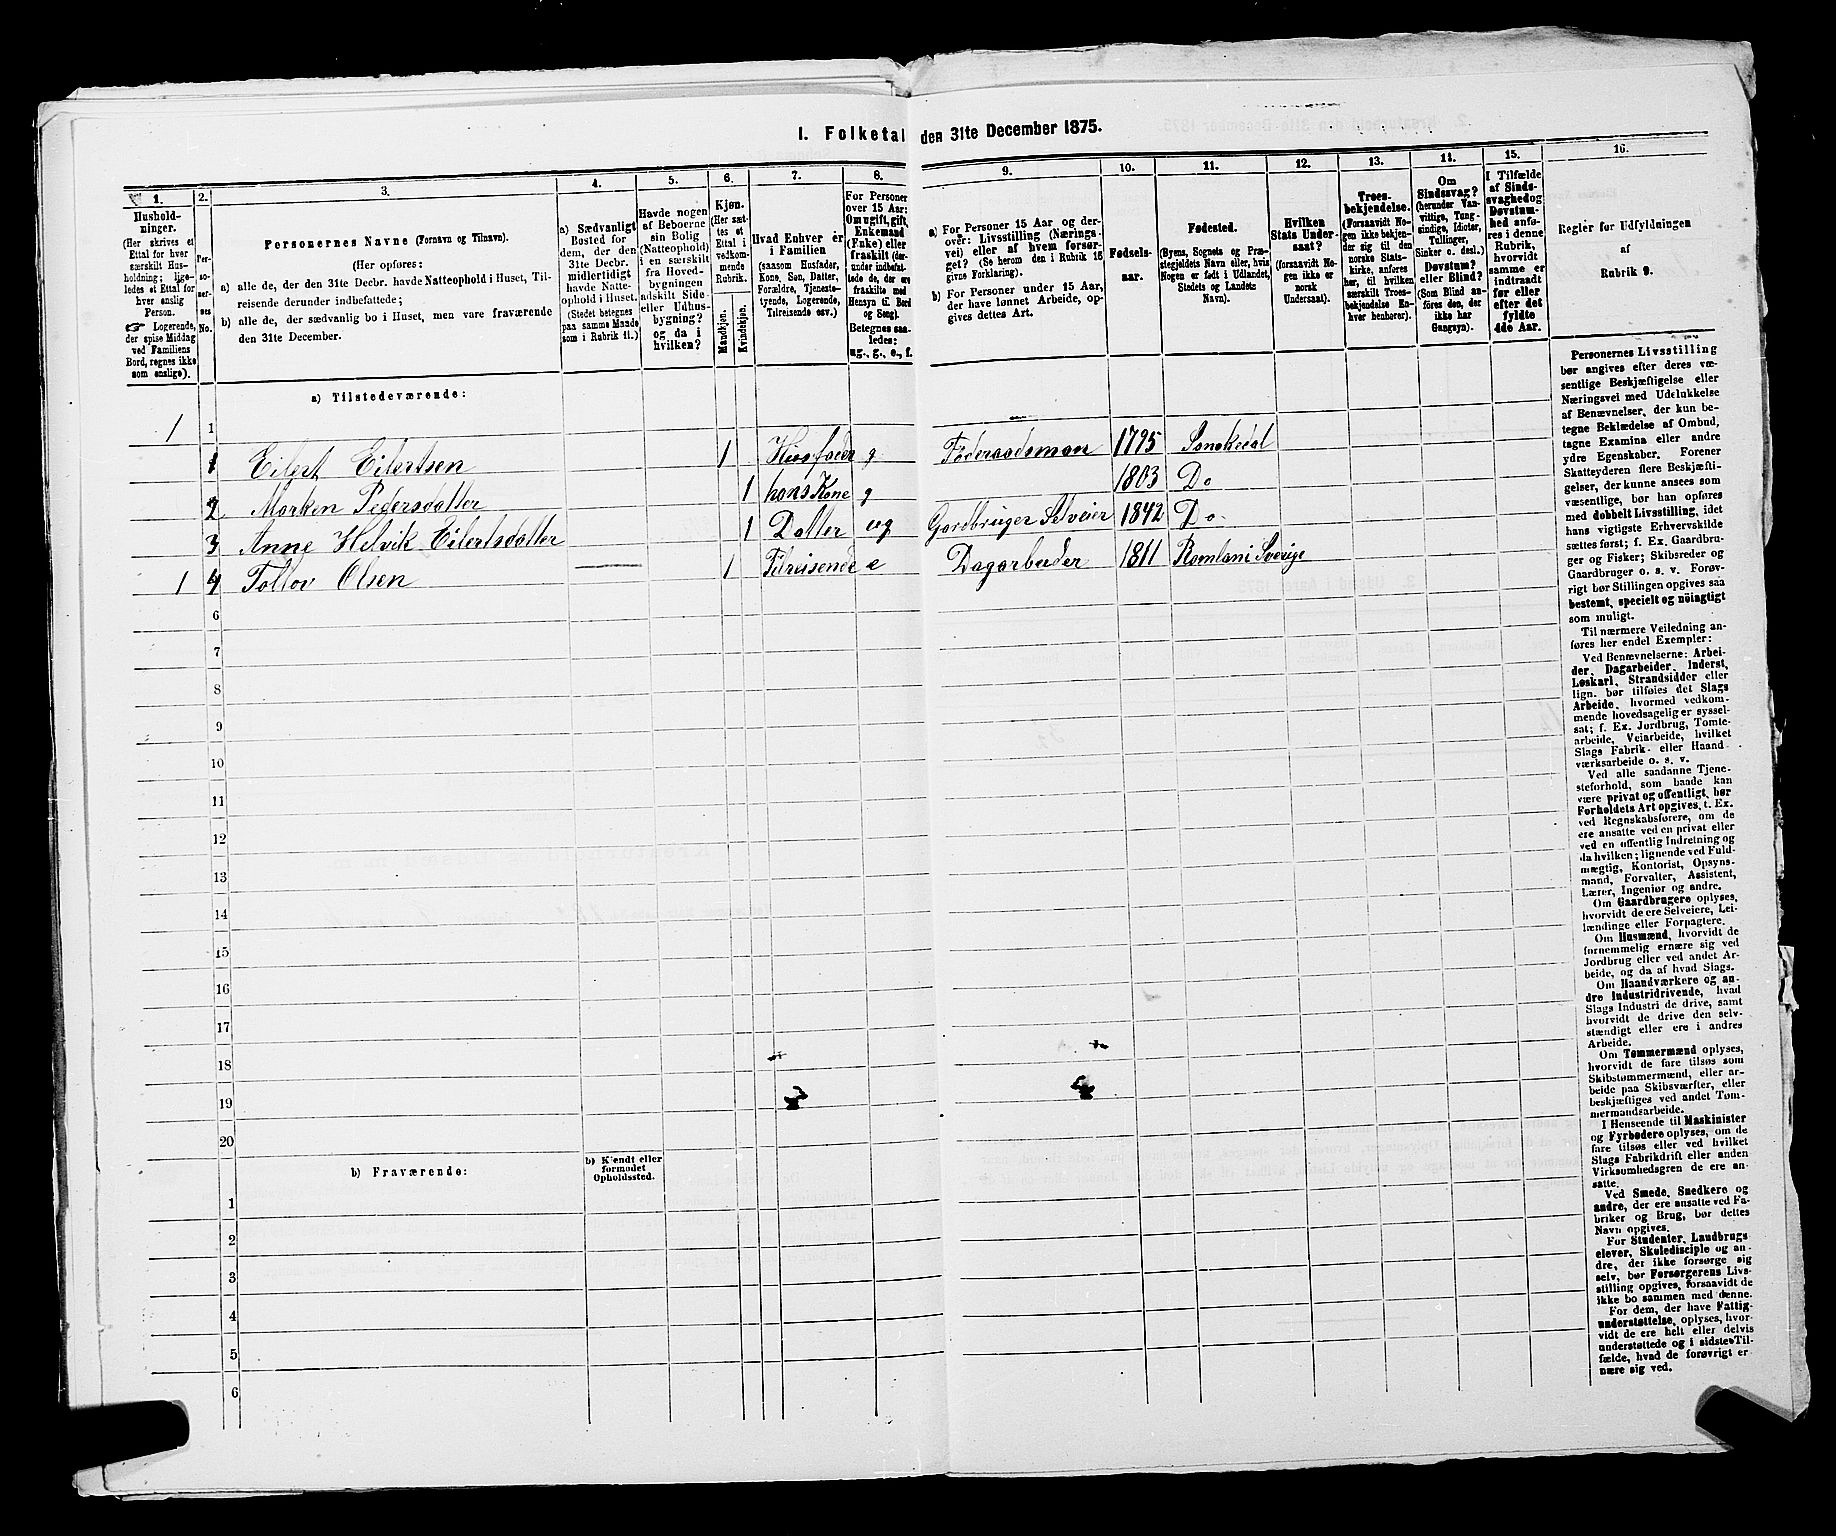 I. Folketal den 31te December 1875.
1. 2. 3. 4. 5. 6. 7. 8. 9. 10. 11. 12. 13. 14. 15. 16.
Hushold-
ninger.
(Her skrives et
Ettal for hver
særskilt Hus-
holdning; lige-
ledes et Ettal for
hver enslig
Person.
☞ Logerende,
der spise Middag
ved Familiens
Bord, regnes ikke
som enslige).
Per-
so-
ner-
nes
No.
Personernes Navne (Fornavn og Tilnavn).
(Her opføres:
a) alle de, der den 31te Decbr. havde Natteophold i Huset, Til-
reisende derunder indbefattede;
b) alle de, der sædvanlig bo i Huset, men vare fraværende
den 31te December.
a) Sædvanligt
Bosted for
dem, der den
31te Decbr.
midlertidigt
havde Natte-
ophold i Huset.
(Stedet betegnes
paa samme Maade
som i Rubrik 11.)
Havde nogen
af Beboerne
sin Bolig
(Natteophold)
i en særskilt
fra Hoved-
bygningen
adskilt Side-
eller Udhus-
bygning?
og da i
hvilken?
Kjøn.
(Her sæt-
tes et
Ettal i
vedkom-
mende
Rubrik.
Mandkjøn.
Kvindekjøn.
Hvad Enhver er
i Familien
(saasom Husfader,
Kone, Søn, Datter,
Forældre, Tjeneste-
tyende, Logerende,
Tilreisende osv.)
For Personer
over 15 Aar:
Om ugift, gift,
Enkemand
(Enke) eller
fraskilt (der-
under indbefat-
tede de, der ere
fraskilte med
Hensyn til Bord
og Seng).
Betegnes saa-
ledes:
ug., g., e., f.
a) For Personer 15 Aar og der-
over: Livsstilling (Nærings-
vei) eller af hvem forsør-
get? (Se herom den i Rubrik 16
givne Forklaring).
b) For Personer under 15 Aar,
der have lønnet Arbeide, op-
gives dettes Art.
Fødsels-
aar.
Fødested.
(Byens, Sognets og Præ-
stegjeldets Navn eller, hvis
Nogen er født i Udlandet,
Stedets og Landets
Navn).
Hvilken
Stats Under-
saat?
(forsaavidt No-
gen ikke er
norsk
Undersaat).
Troes-
bekjendelse.
(Forsaavidt No-
gen ikke bekjen-
der sig til den
norske Stats-
kirke, anføres
her, til hvilken
særskilt Troes-
bekjendelse En-
hver henhører).
Om
Sindssvag?
(herunder Van-
vittige, Tung-
sindige, Idioter,
Tullinger,
Sinker o. desl.)
Døvstum?
eller Blind?
(Som Blind an-
føres den, der
ikke har
Gangsyn).
I Tilfælde
af Sinds-
svaghed og
Døvstum-
hed anfø-
res i denne
Rubrik,
hvorvidt
samme er
indtraadt
før eller
efter det
fyldte
4de Aar.
Regler for Udfyldningen
af
Rubrik 9.
a) Tilstedeværende:
1 1
1 Eilert Eilertsen 1 Husfader g Føderaadsman 1795
2 Marken Pedersdatter 1 hans Kone g 1803 Do
3 Anne Helvik Eilertsdatter 1 Datter ug Gardbruger Selveier 1842 Do
1 4 Tollov Olsen 1 Tilreisende e Dagarbeider 1811 Sverige
6
7
8
9
10
11
12
13
14
15
16
17
18
19
20
b) Fraværende:
b) Kjendt eller
formodet
Opholdssted.
1
2
3
4
5
6
Personernes Livsstilling
bør angives efter deres væ-
sentlige Beskjæftigelse eller
Næringsvei med Udelukkelse
af Benævnelser, der kun be-
tegne Beklædelse af Ombud,
tagne Examina eller andre
ydre Egenskaber. Forener
Skatteyderen flere Beskjæfti-
gelser, der kunne ansees som
væsentlige, bør han opføres
med dobbelt Livsstilling, idet
hans vigtigste Erhvervskilde
sættes først; f. Ex. Gaardbru-
ger og Fisker; Skibsreder og
Gaardbruger o. s. v. Forøv-
rigt bør Stillingen opgives saa
bestemt, specielt og nøiagtigt
som muligt.
Til nærmere Veiledning an-
føres her endel Exempler:
Ved Benævnelserne: Arbei-
der, Dagarbeider, Inderst,
Løskarl, Strandsidder eller
lign. bør tilføies det Slags
Arbeide, hvormed vedkom-
mende hovedsagelig er syssel-
sat; f. Ex. Jordbrug, Tomte-
arbeide, Veiarbeide, hvilket
Slags Fabrik- eller Haand-
værksarbeide o. s. v.
Ved alle saadanne Tjene-
steforhold, som baade kan
være privat og offentligt, bør
Forholdets Art opgives, t. Ex.
ved Regnskabsførere, om de
ere ansatte ved en privat eller
ved en offentlig Indretning og
da hvilken; lignende ved Fuld-
mægtig, Kontorist, Opsyns-
mand, Forvalter, Assistent,
Lærer, Ingeniør og andre.
Om Gaardbrugere oplyses,
hvorvidt de ere Selveiere, Lei-
lændinge eller Forpagtere.
Om Husmænd, hvorvidt de
fornemmelig ernære sig ved
Jordbrug eller ved andet Ar-
beide, og da af hvad Slags.
Om Haandværkere og an-
dre Industridrivende, hvad
Slags Industri de drive, samt
hvorvidt de drive den selv-
stændigt eller ere i andres
Arbeide.
Om Tømmermænd oplyses,
hvorvidt de fare tilsøs som
Skibstømmermænd, eller ar-
beide paa Skibsværfter, eller
beskjæftiges ved andet Tøm-
mermandsarbeide.
I Henseende til Maskinister
og Fyrbødere oplyses, om de
fare tilsøs eller ved hvilket
Slags Fabrikdrift eller anden
Virksomhedsgren de ere an-
satte.
Ved Smede, Snedkere og
andre, der ere ansatte ved Fa-
briker og Brug, bør dettes
Navn opgives.
For Studenter, Landbrugs-
elever, Skoledisciple og an-
dre, der ikke forsørge sig
selv, bør Forsørgerens Livs-
stilling opgives, forsaavidt de
ikke bo sammen med denne.
For dem, der have Fattig-
understøttelse, oplyses, hvor-
vidt de ere helt eller delvis
understøttede og i sidste Til-
fælde, hvad de forøvrigt er-
nære sig ved.